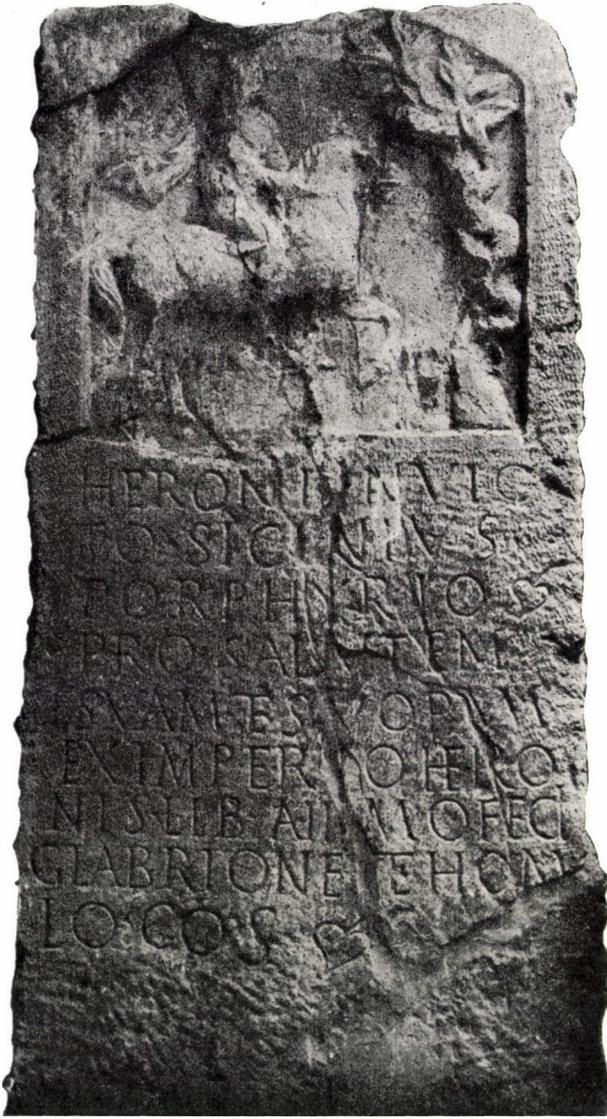 HERONI INVIC
TO SICINIVS
PORPHYRIO
PRO SALVTEM
SVAM E SVORVM
EX IMPERIO HERO
NIS LIB ANIMO FECI
GLABRIONE ET HOMV
LO COS